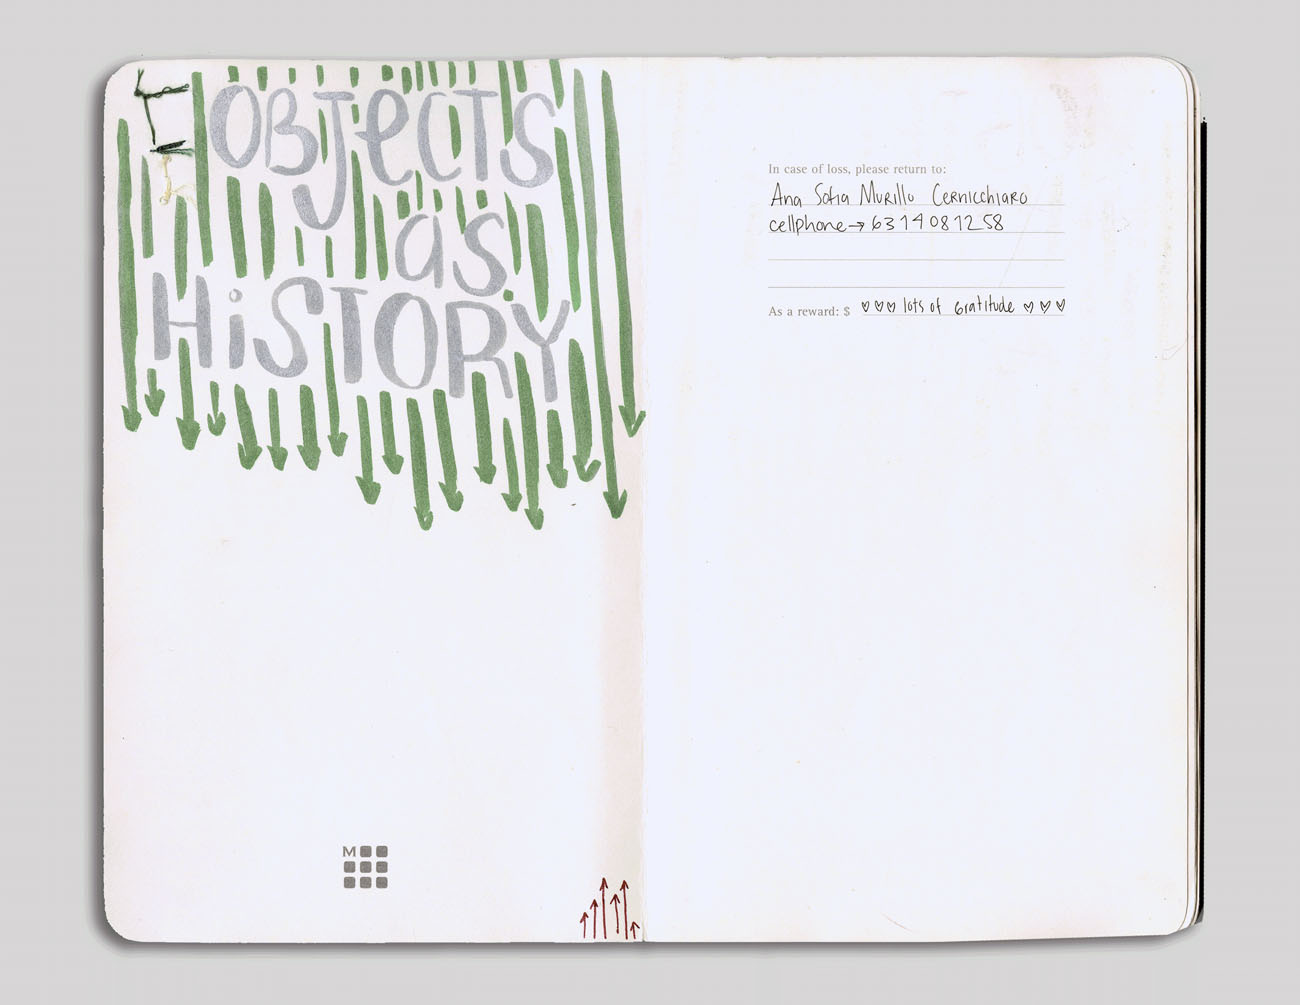 OBJECTS
as
HiSTORY
M
In case of loss, please return to:
Ana Sofia Murillo Cernicchiaro
cellphone→ 6314081258
As a reward: $ ♡♡♡ lots of Gratitude ♡♡♡